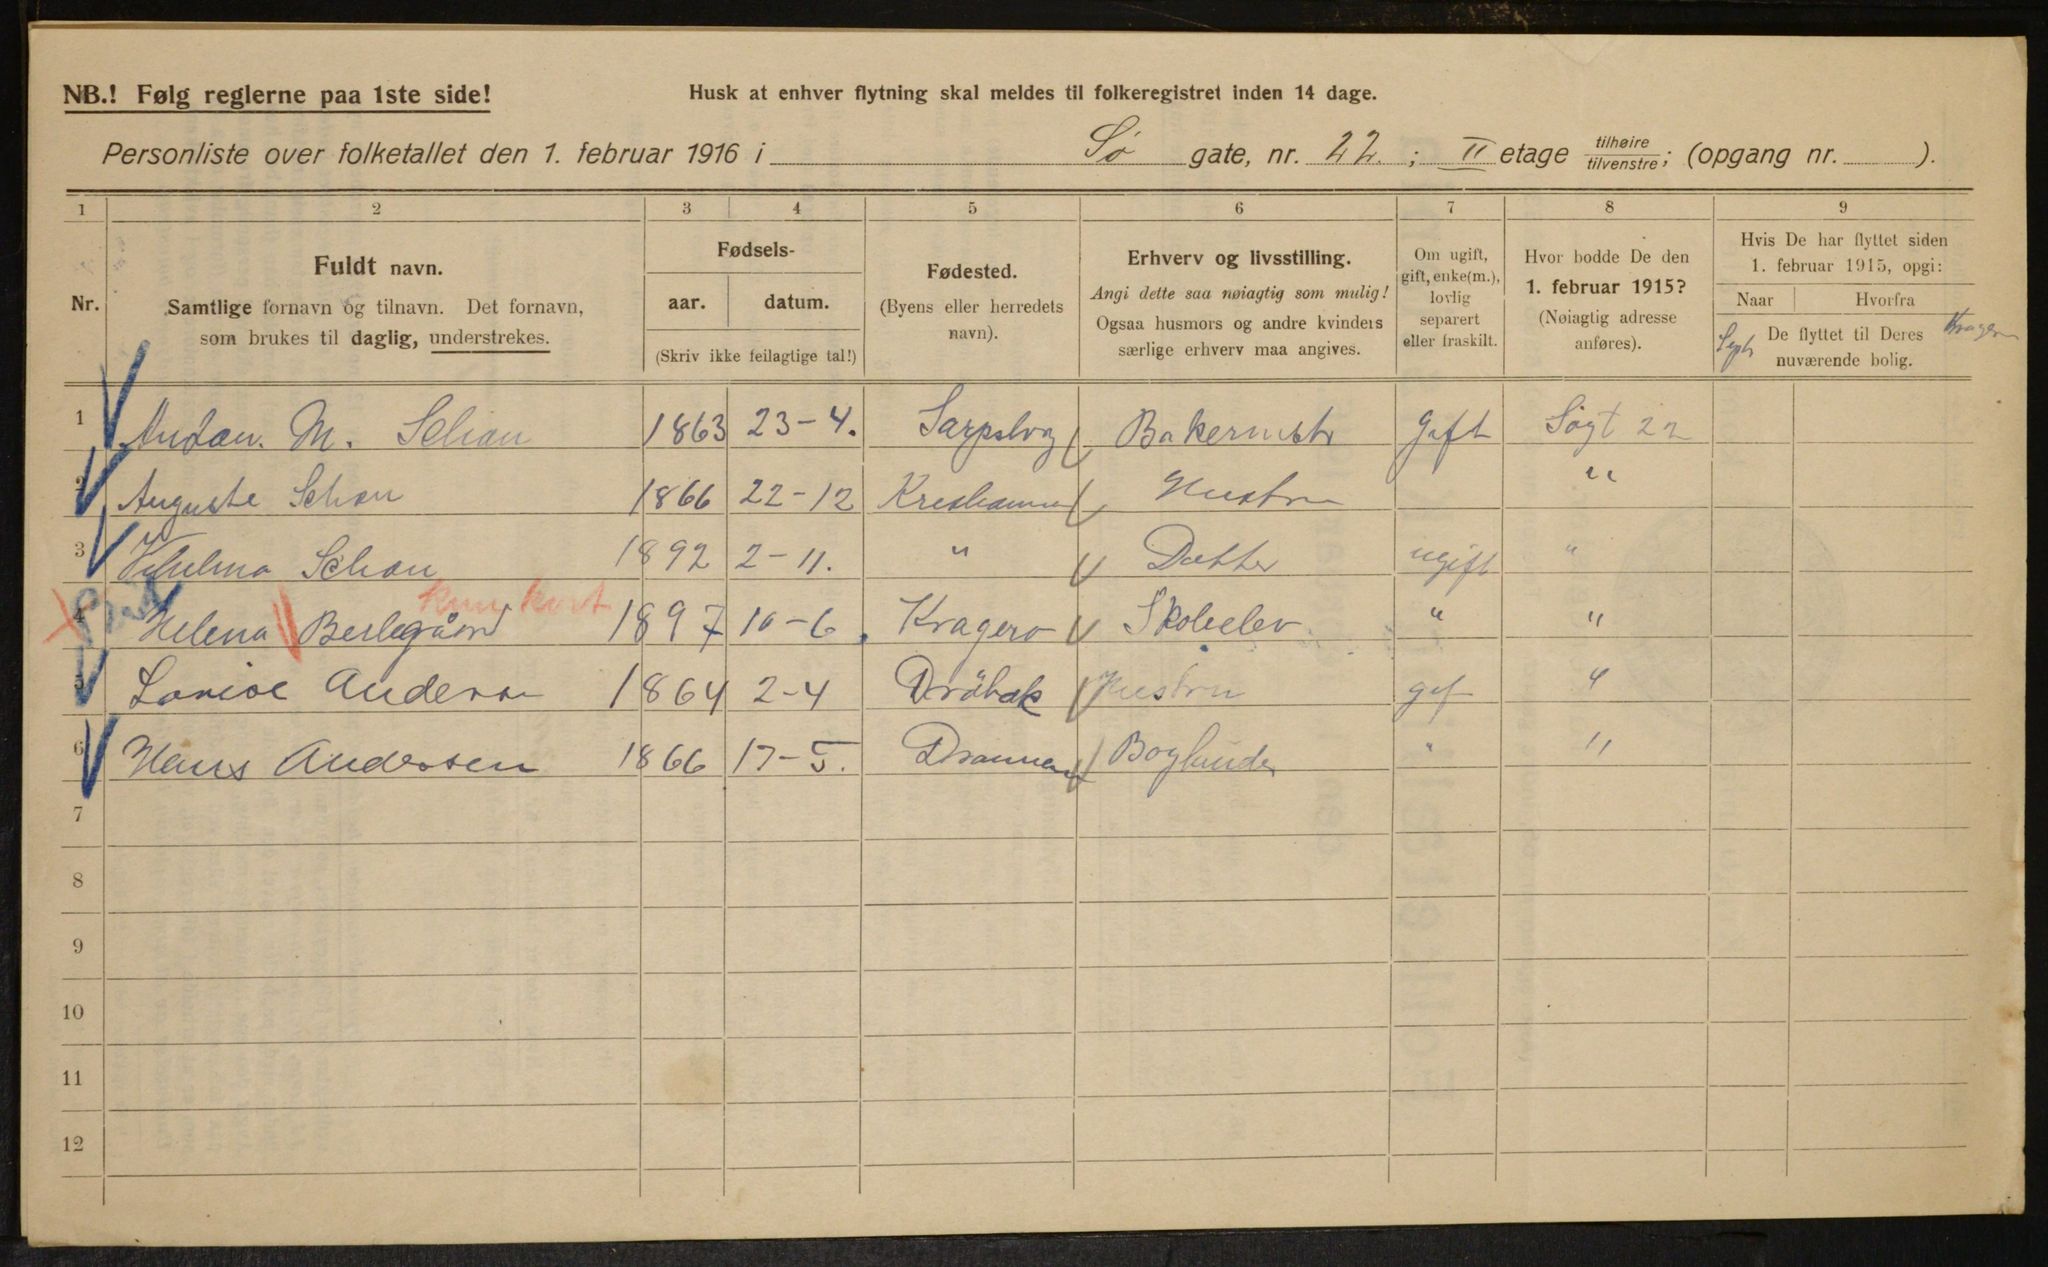 NB.! Følg reglerne paa 1ste side!
Husk at enhver flytning skal meldes til folkeregistret inden 14 dage.
Personliste over folketallet den 1. februar 1916 i Sø gate, nr. 22. ; II etage tilhøire/tilvenstre; (opgang nr. ).
1 2 3 4 5 6 7 8 9
Nr.
Fuldt navn.
Samtlige fornavn og tilnavn. Det fornavn,
som brukes til daglig, understrekes.
Fødsels-
aar. datum.
(Skriv ikke feilagtige tal!)
Fødested.
(Byens eller herredets
navn).
Erhverv og livsstilling.
Angi dette saa nøiagtig som mulig!
Ogsaa husmors og andre kvinders
særlige erhverv maa angives.
Om ugift,
gift, enke(m.),
lovlig
separert
eller fraskilt.
Hvor bodde De den
1. februar 1915?
(Nøiagtig adresse
anføres).
Hvis De har flyttet siden
1. februar 1915, opgi:
Naar Hvorfra
De flyttet til Deres
nuværende bolig.
Sept Kragerø
1 M. Schau 1863 23-4. Sarpsbog Bakermstr Gift Søgt 22
2 Auguste Schau 1866 22-12 Hustru "
3 Vilhelma Schau 1892 2-11. " Datter ugift "
kun kort
4 Helena 1897 10-6. Kragero Skoleelev " "
5 Lovise Anderen 1864 2-4 Dröbak Hustru gif "
6 Hans Anderssen 1866 17-5. Drammen Bogbinder " "
7
8
9
10
11
12